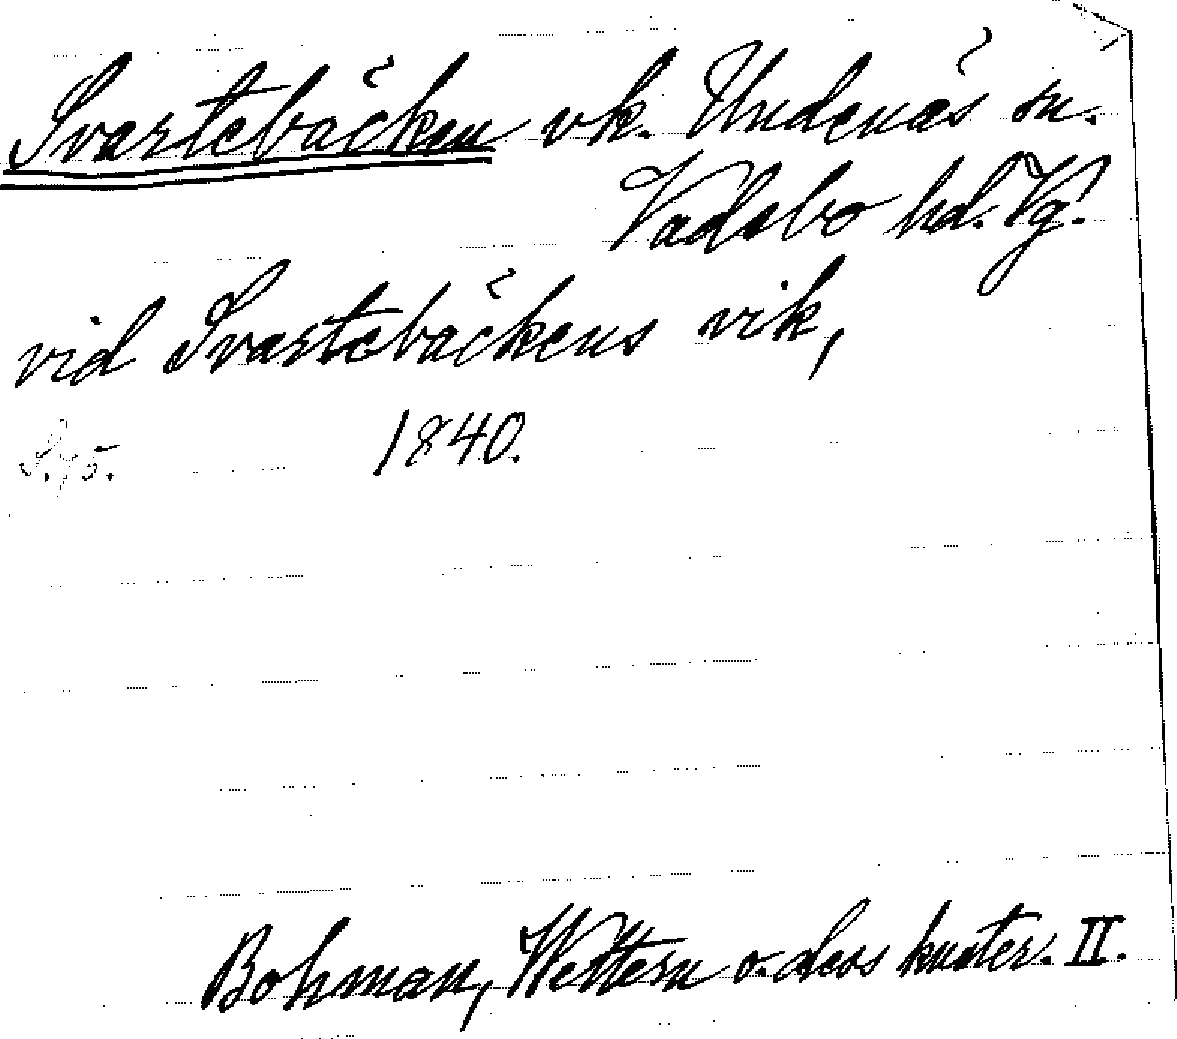 Svartebäcken vk. Undenäs sn.
Vadsbo hd. Vg.
vid Svartebäckens vik,
S. 75. 1840.
Bohman, Wettern o. dess kuster. II.